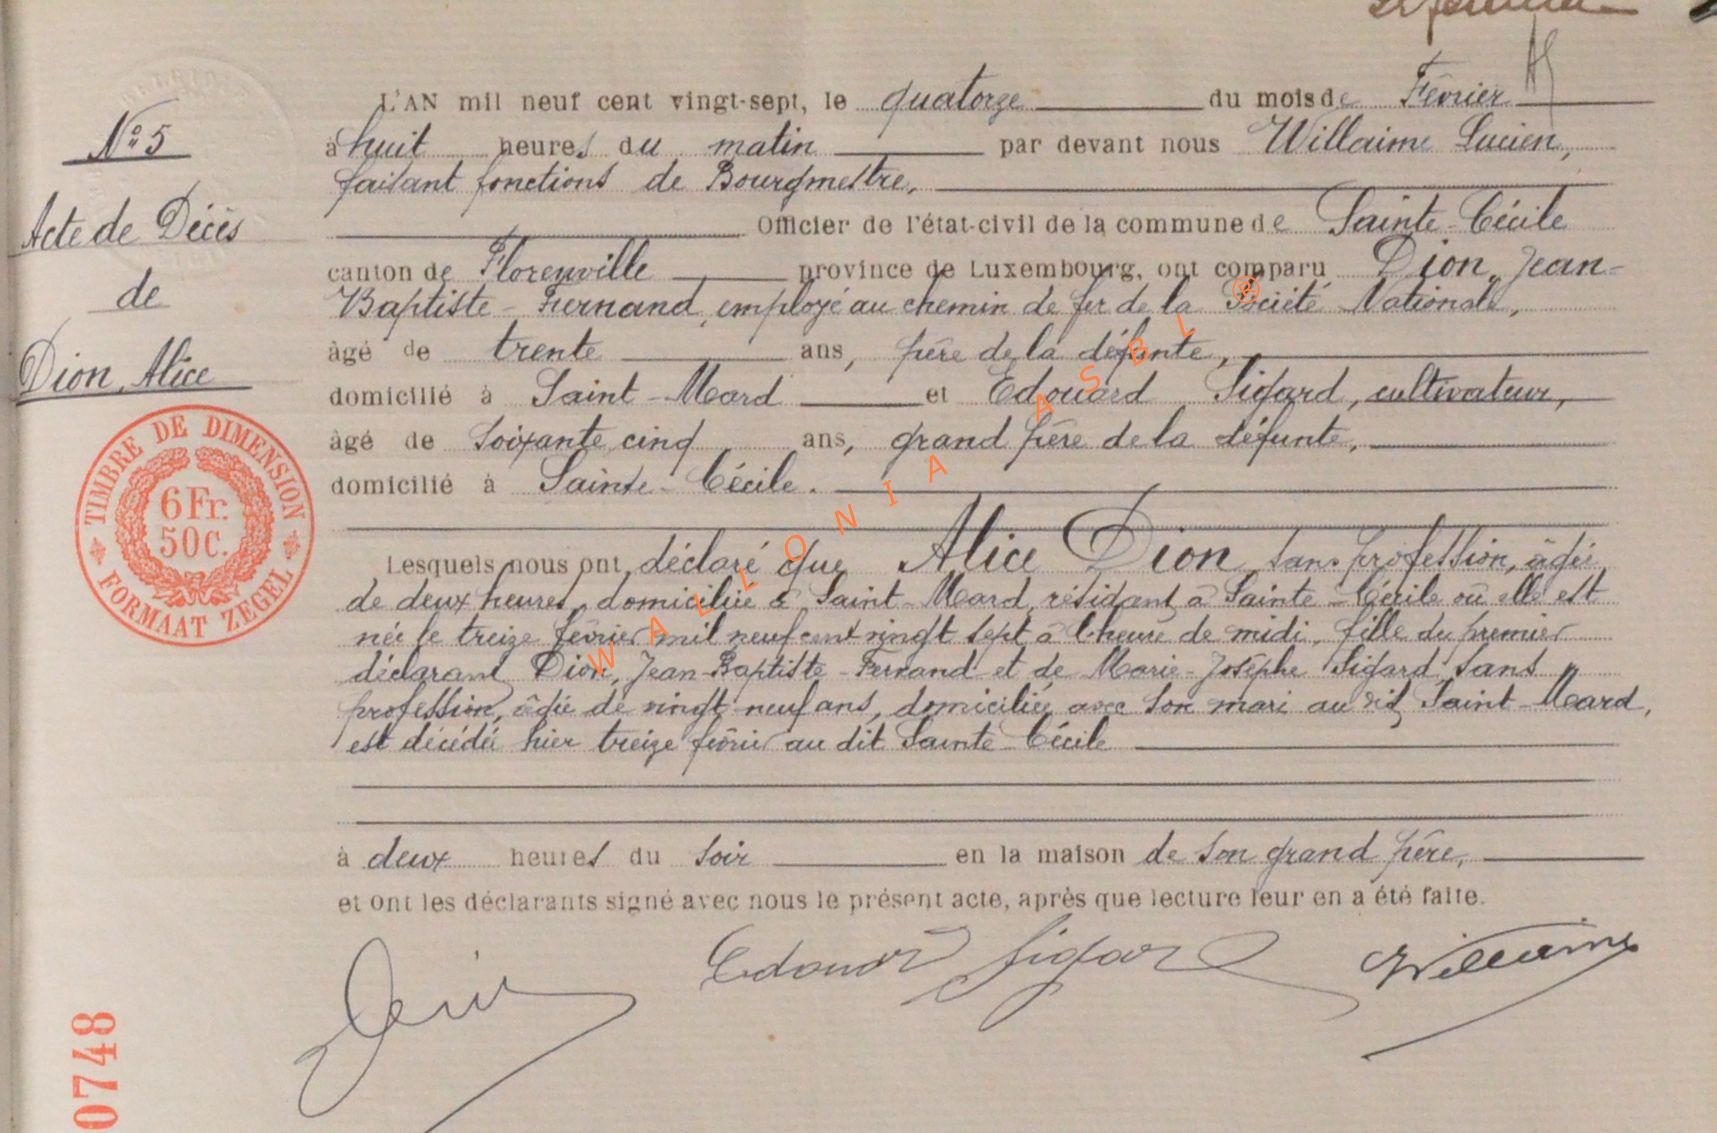 L'AN mil neuf cent vingt-sept, le quatorze du mois de Février
à huit heures du matin par devant nous Willaime Lucien,
faisant fonctions de Bourgmestre,
Officier de l'état-civil de la commune de Sainte-Cécile
canton de Florenville province de Luxembourg, ont comparu Dion, Jean-
Baptiste-Fernand, employé au chemin de fer de la Société Nationale,
âgé de trente ans, père de la défunte,
domicilié à Saint-Mard et Edouard Sigard, cultivateur,
âgé de soixante cinq ans, grand père de la défunte,
domicilié à Sainte-Cécile.
Lesquels nous ont déclaré que Alice Dion, sans profession, âgée
de deux heures, domiciliée à Saint-Mard, résidant à Sainte-Cécile où elle est
née le treize février mil neuf cent vingt sept à l'heure de midi, fille du premier
déclarant Dion, Jean-Baptiste-Fernand et de Marie-Josèphe Sigard, sans
profession, âgée de vingt-neuf ans, domiciliée avec son mari au dit Saint-Mard,
est décédée hier treize février au dit Sainte-Cécile
à deux heures du soir en la maison de son grand père,
et ont les déclarants signé avec nous le présent acte, après que lecture leur en a été faite.
Dion
Edouard Sigard
Willaime
N° 5
Acte de Décès
de
Dion, Alice
TIMBRE DE DIMENSION
6 Fr.
50 C.
FORMAAT ZEGEL
0748
WALLONIA ASBL ®